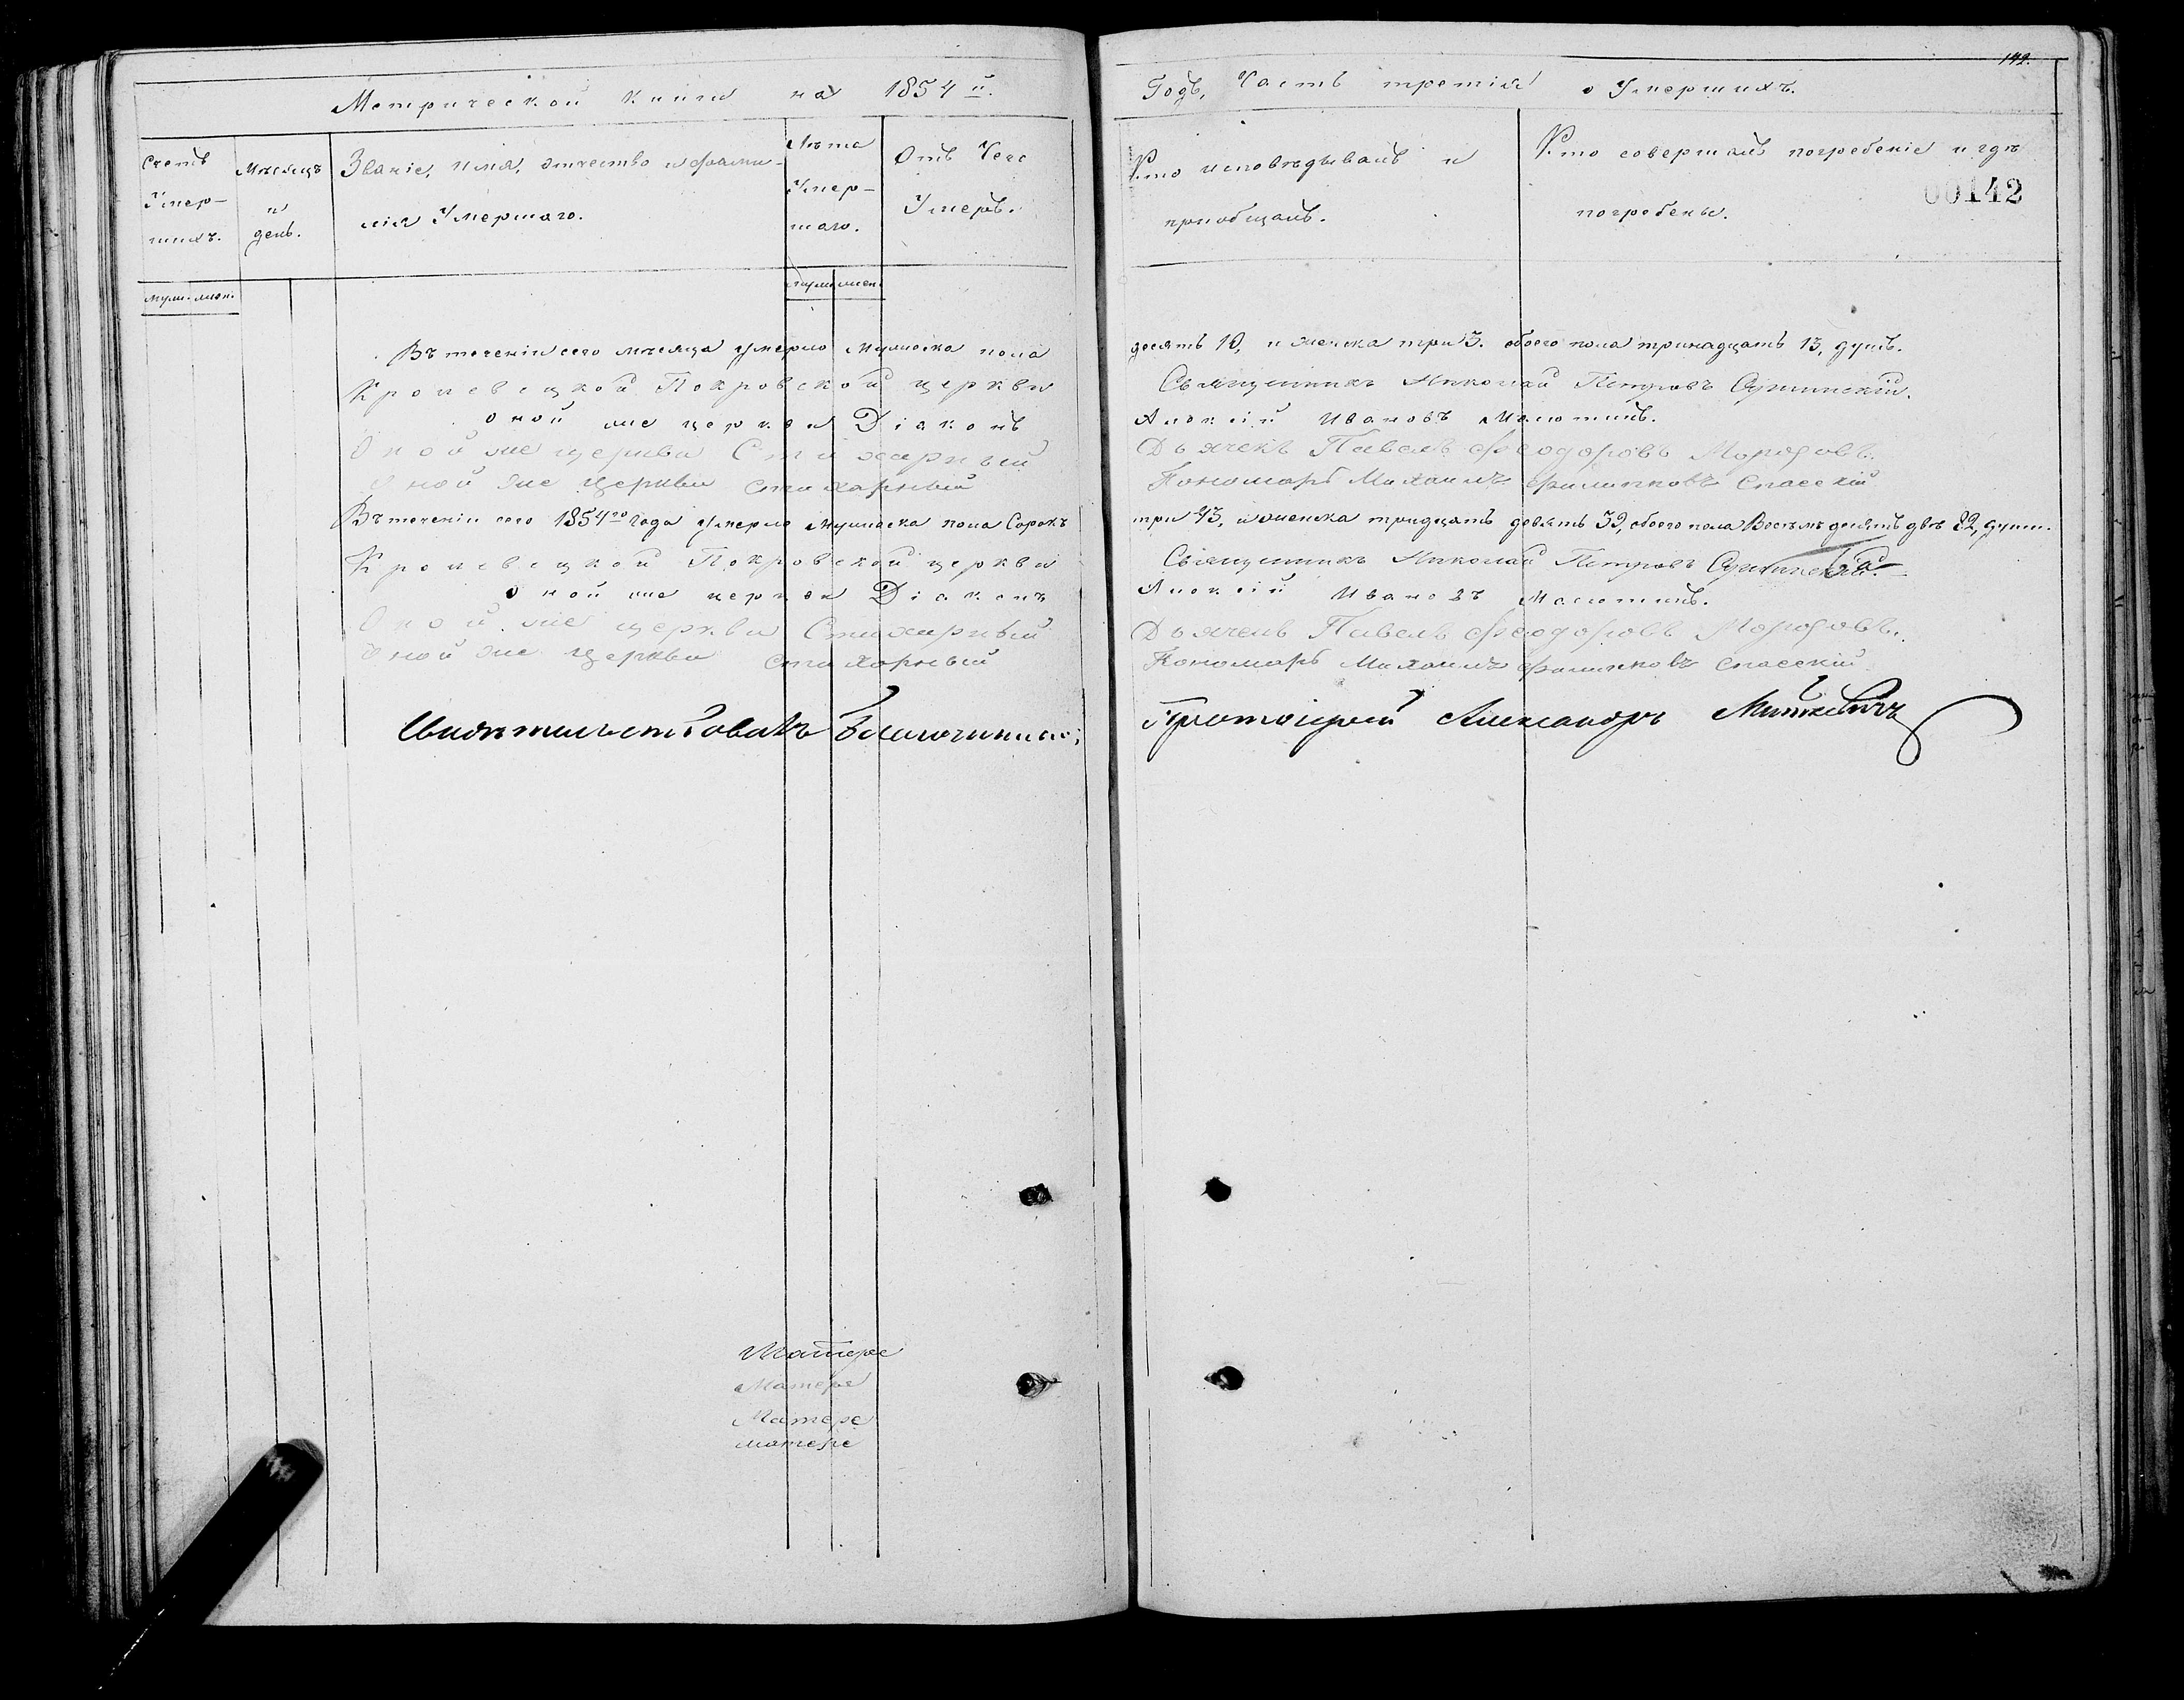 142.
Метрической книги на 1854 й. Годъ, Часть третія о Умершихъ.
Счетъ Умер-шихъ.
Мѣсяцъ и день.
Званіе, имя, отчество и фами-
лія Умершаго.
Лѣта Умер-шаго.
Отъ Чего Умеръ.
Кто исповѣдывалъ и
пріобщалъ.
Кто совершалъ погребеніе и гдѣ
погребены.
00142
муж. жен.
муж. жен.
Въ теченіи сего мѣсяца умерло мужеска пола десять 10, и женска три 3. обоего пола тринадцать 13, душъ.
Кролевецкой Покровской церкви Священникъ Николай Петровъ
оной же церкви Діаконъ Алексій Ивановъ Малютинъ.
Оной же церкви Стихарный Дьячекъ Павелъ Феодоровъ
Оной же церкви стихарный Пономарь Михаилъ Спасскій
Въ теченіи сего 1854го Года умерло мужеска пола Сорокъ три 43, и женска тридцать девять 39, обоего пола Восемьдесятъ двѣ 82, души.
Кролевецкой Покровской церкви Священникъ Николай Петровъ
Оной же церкви Діаконъ Алексій Ивановъ Малютинъ.
Оной же церкви Стихарный Дьячекъ Павелъ Феодоровъ
Оной же церкви стихарный Пономарь Михаилъ Спасскій
Свидѣтельствовалъ Благочинный, Протоіерей Александръ Миткевичъ
Матере
Матере
Матере
матере